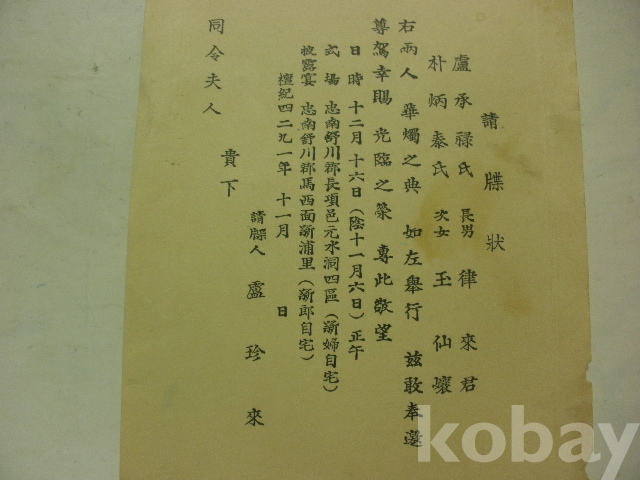 請牒狀
盧承祿氏 長男 律來君
朴炳泰氏 次女 玉仙孃
右兩人 華燭之典 如左擧行 玆敢奉邀
尊駕幸賜 光臨之榮 專此敬望
日時 十二月十六日(陰十一月六日)正午
式場 忠南舒川郡長項邑元水洞四區(新婦自宅)
披露宴 忠南舒川郡馬西面新浦里(新郞自宅)
檀紀四二九一年 十一月 日
請牒人 盧珍來
貴下
同令夫人
kobay